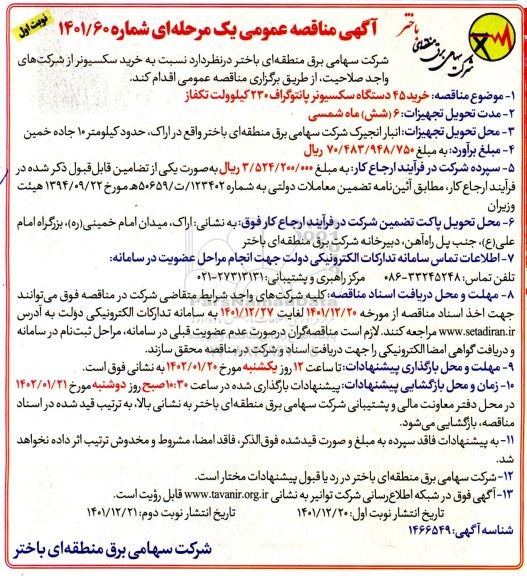 نوبت اول
آگهی مناقصه عمومی یک مرحله‌ای شماره ۱۴۰۱/۶۰
باختر
شرکت سهامی برق منطقه‌ای
شرکت سهامی برق منطقه‌ای باختر درنظردارد نسبت به خرید سکسیونر از شرکت‌های
واجد صلاحیت، از طریق برگزاری مناقصه عمومی اقدام کند.
۱- موضوع مناقصه: خرید ۴۵ دستگاه سکسیونر پانتوگراف ۲۳۰ کیلوولت تکفاز
۲- مدت تحویل تجهیزات: ۶ (شش) ماه شمسی
۳- محل تحویل تجهیزات: انبار انجیرک شرکت سهامی برق منطقه‌ای باختر واقع در اراک، حدود کیلومتر ۱۰ جاده خمین
۴- مبلغ برآورد: به مبلغ ۷۰/۴۸۳/۹۴۸/۷۵۰ ریال
۵- سپرده شرکت در فرآیند ارجاع کار: به مبلغ ۳/۵۲۴/۲۰۰/۰۰۰ ریال به‌صورت یکی از تضامین قابل‌قبول ذکر شده در
فرآیند ارجاع کار، مطابق آئین‌نامه تضمین معاملات دولتی به شماره ۱۲۳۴۰۲/ت/۵۰۶۵۹ه مورخ ۱۳۹۴/۰۹/۲۲ هیئت
وزیران
۶- محل تحویل پاکت تضمین شرکت در فرآیند ارجاع کار فوق: به نشانی: اراک، میدان امام خمینی(ره)، بزرگراه امام
علی(ع)، جنب پل راه‌آهن، دبیرخانه شرکت برق منطقه‌ای باختر
۷- اطلاعات تماس سامانه تدارکات الکترونیکی دولت جهت انجام مراحل عضویت در سامانه:
تلفن تماس: ۳۳۲۴۵۲۴۸-۰۸۶ مرکز راهبری و پشتیبانی: ۲۷۳۱۳۱۳۱-۰۲۱
۸- مهلت و محل دریافت اسناد مناقصه: کلیه شرکت‌های واجد شرایط متقاضی شرکت در مناقصه فوق می‌توانند
جهت اخذ اسناد مناقصه از مورخه ۱۴۰۱/۱۲/۲۰ لغایت ۱۴۰۱/۱۲/۲۷ به سامانه تدارکات الکترونیکی دولت به آدرس
www.setadiran.ir مراجعه کنند. لازم است مناقصه‌گران درصورت عدم عضویت قبلی در سامانه، مراحل ثبت‌نام در سامانه
و دریافت گواهی امضا الکترونیکی را جهت دریافت اسناد و شرکت در مناقصه محقق سازند.
۹- مهلت و محل بارگذاری پیشنهادات: تا ساعت ۱۲ روز یکشنبه مورخ ۱۴۰۲/۰۱/۲۰ به نشانی فوق است.
۱۰- زمان و محل بازگشایی پیشنهادات: پیشنهادات بارگذاری شده در ساعت ۱۰:۳۰ صبح روز دوشنبه مورخ ۱۴۰۲/۰۱/۲۱
در محل دفتر معاونت مالی و پشتیبانی شرکت سهامی برق منطقه‌ای باختر به نشانی بالا، به ترتیب قید شده در اسناد
مناقصه، بازگشایی می‌شود.
۱۱- به پیشنهادات فاقد سپرده به مبلغ و صورت قیدشده فوق‌الذکر، فاقد امضا، مشروط و مخدوش ترتیب اثر داده نخواهد
شد.
۱۲- شرکت سهامی برق منطقه‌ای باختر در رد یا قبول پیشنهادات مختار است.
۱۳- آگهی فوق در شبکه اطلاع‌رسانی شرکت توانیر به نشانی www.tavanir.org.ir قابل رؤیت است.
تاریخ انتشار نوبت اول: ۱۴۰۱/۱۲/۲۰ تاریخ انتشار نوبت دوم: ۱۴۰۱/۱۲/۲۱
شناسه آگهی: ۱۴۶۶۵۴۹
شرکت سهامی برق منطقه‌ای باختر